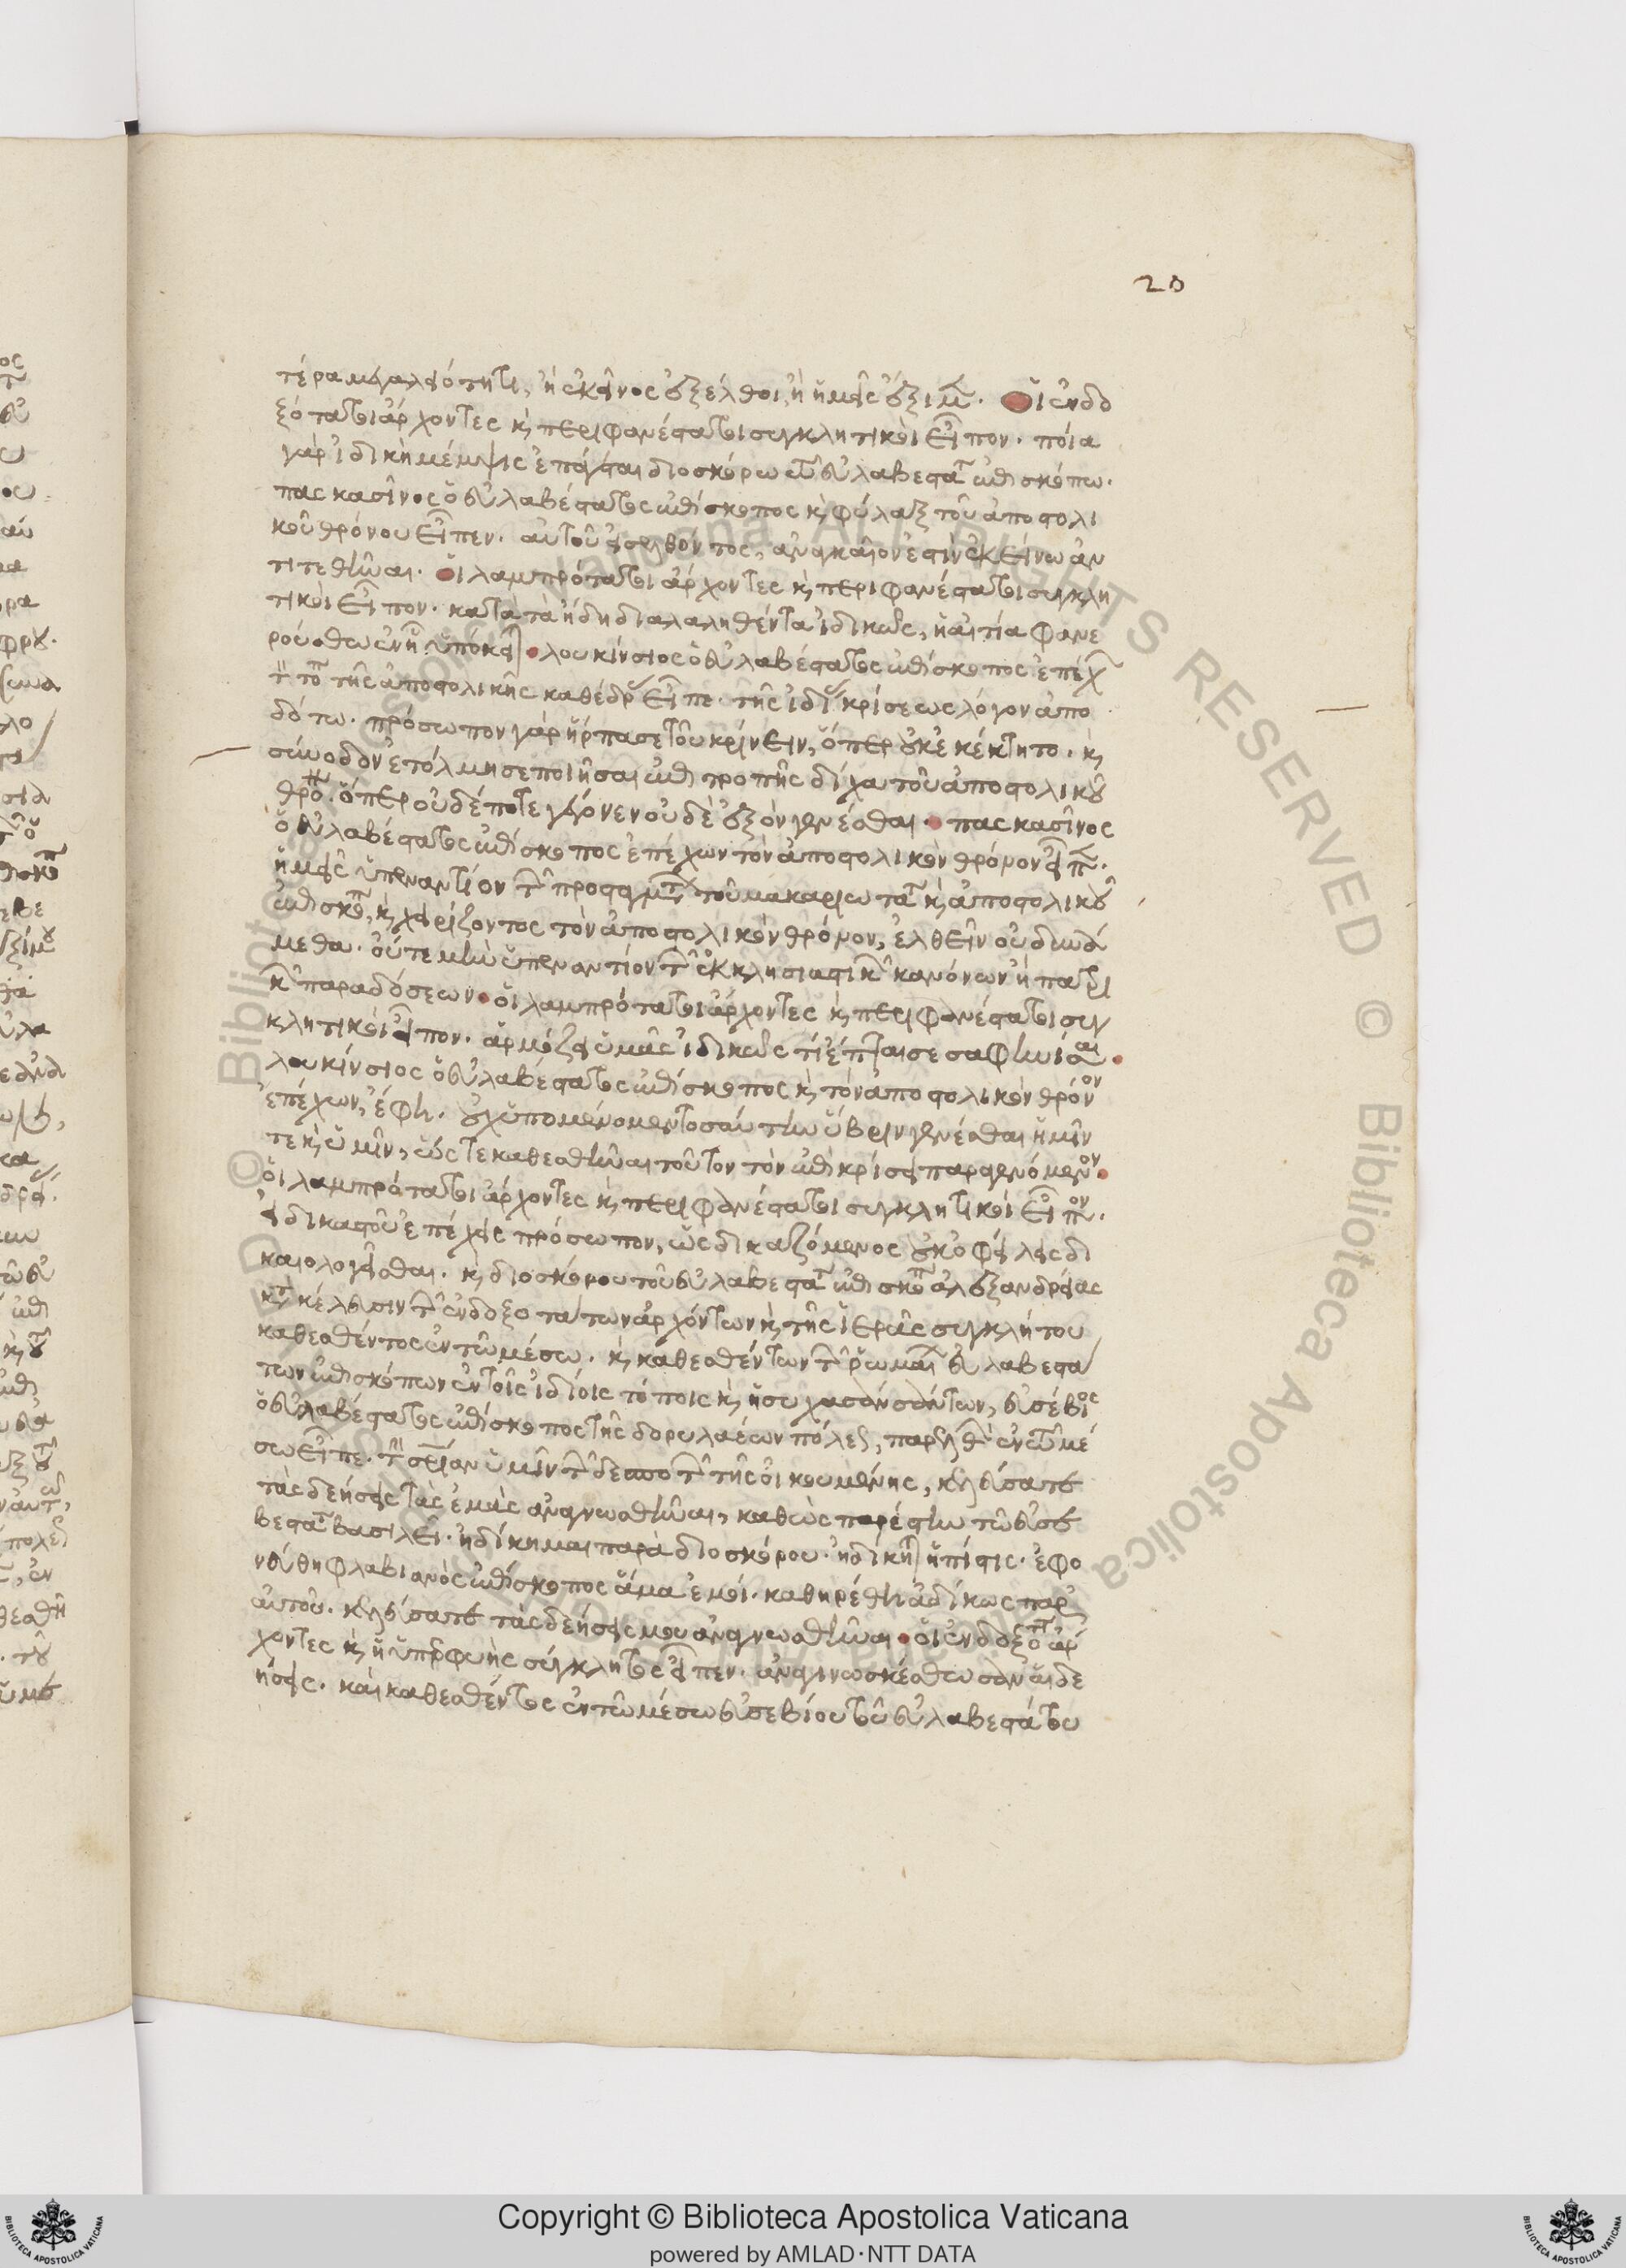 20
τέρα μεγαλειότητι, ἢ ἐκεῖνος ἐξέλθοι, ἢ ἡμεῖς ἔξιμεν. Οἱ ἐνδο
ξότατοι ἄρχοντες κ περιφανέστατοι συγκλητικοὶ εἶπον. ποία
γὰρ ἰδικὴ μέμψις ἐπάγεται διοσκόρω τῶ εὐλαβεστάτ ἐπισκόπω.
πασκασῖνος ὁ εὐλαβέστατος ἐπίσκοπος κ φύλαξ τοῦ ἀποστολι
κοῦ θρόνου εἶπεν. αὐτοῦ εἰσελθόντος, ἀναγκαῖον ἐστὶν ἐκείνω ἀν
τιτεθῆναι. Οἱ λαμπρότατοι ἄρχοντες κ περιφανέστατοι συγκλη
τικοὶ εἶπον. κατὰ τὰ ἤδη διαλαληθέντα ἰδικῶς, ἡ αἰτία φανε
ρούσθω ἐν ἧ ὑπόκειται λουκίνσιος ὁ εὐλαβέστατος ἐπίσκοπος ἐπέχ
τ τόπ τῆς ἀποστολικῆς καθέδρας εἶπε. τῆς ἰδίας κρίσεως λόγον ἀπο
δότω. πρόσωπον γὰρ ἥρπασε τοῦ κρίνειν, ὅπερ οὐκ ἐκέκτητο. κ
σύνοδον ἐτόλμησε ποιῆσαι ἐπιτροπῆς δίχα τοῦ ἀποστολικοῦ
θρόν. ὅπερ οὐδέποτε γέγονεν οὐδὲ ἐξὸν γενέσθαι. πασκασῖνος
ὁ εὐλαβέστατος ἐπίσκοπος ἐπέχων τὸν ἀποστολικὸν θρόνον εἶπεν.
ἡμεῖς ὑπεναντίον τῶν προσταγμάτων τοῦ μακαριωτάτ κ ἀποστολικοῦ
ἐπισκόπ, κ χειρίζοντος τὸν ἀποστολικὸν θρόνον, ἐλθεῖν οὐ δυνά
μεθα. οὔτε μὴν ὑπεναντίον τῶν ἐκκλησιαστικῶν κανόνων ἢ πατρι
κῶν παραδόσεων οἱ λαμπρότατοι ἄρχοντες κ περιφανέστατοι συγ
κλητικοὶ εἶπον. ἁρμόζει ὑμᾶς ἰδικῶς τί ἔπταισε σαφηνίσαι.
λουκίνσιος ὁ εὐλαβέστατος ἐπίσκοπος κ τὸν ἀποστολικὸν θρόνον
ἐπέχων, ἔφη. οὐχ ὑπομένομεν τοσαύτην ὕβριν γενέσθαι ἡμῖν
τε κ ὑμῖν, ὥστε καθεσθῆναι τοῦτον τὸν ἐπὶ κρίσει παραγενόμενον
οἱ λαμπρότατοι ἄρχοντες κ περιφανέστατοι συγκλητικοὶ εἶπον.
εἰ δικαστοῦ ἐπέχεις πρόσωπον, ὡς δικαζόμενος οὐκ ὀφείλεις δι
καιολογεῖσθαι. κ διοσκόρου τοῦ εὐλαβεστάτ ἐπισκόπ ἀλεξανδρείας
κατὰ κέλευσιν τῶν ἐνδοξοτάτων ἀρχόντων κ τῆς ἱερᾶς συγκλήτου
καθεσθέντος ἐν τῶ μέσω. κ καθεσθέντων τῶν ῥωμαίων εὐλαβεστά
των ἐπισκόπων ἐν τοῖς ἰδίοις τόποις κ ἡσυχασάντων, εὐσέβιος
ὁ εὐλαβέστατος ἐπίσκοπος τῆς δορυλαέων πόλεως, παρελθὼν ἐν τῶ μέ
σω εἶπε. τ σωτηρίαν ὑμῖν τῶν δεσποτῶν τῆς οἰκουμένης, κελεύσατε
τὰς δεήσεις τὰς ἐμὰς ἀναγνωσθῆναι, καθὼς παρέστην τῶ εὐσε
βεστάτ βασιλεῖ. ἠδίκημαι παρὰ διοσκόρου. ἠδίκηται ἡ πίστις. ἐφο
νεύθη φλαβιανὸς ἐπίσκοπος ἅμα ἐμοὶ. καθηρέθη ἀδίκως παρ
αὐτοῦ. κελεύσατε τὰς δεήσεις μου ἀναγνωσθῆναι οἱ ἐνδοξότ ἄρ
χοντες κ ἡ ὑπερφυὴς σύγκλητος εἶπεν. ἀναγινωσκέσθωσαν αἱ δε
ήσεις. καὶ καθεσθέντος ἐν τῶ μέσω εὐσεβίου τοῦ εὐλαβεστάτου
Copyright © Biblioteca Apostolica Vaticana
powered by AMLAD·NTT DATA